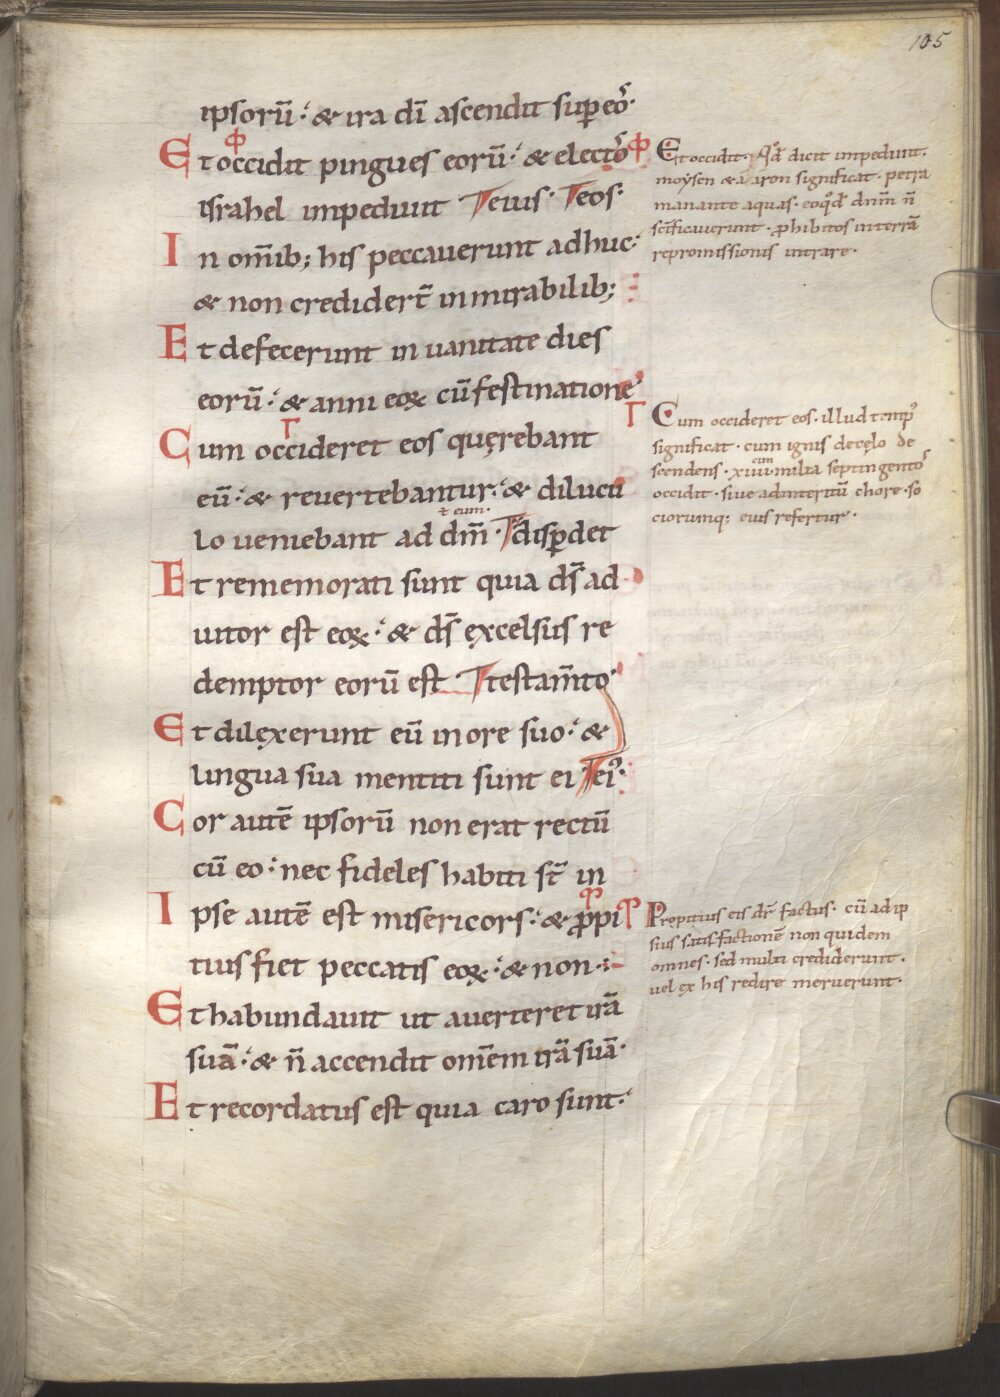 105
ipsorū· & ira dī ascendit sup eoꝰ·
Et occidit pingues eorū· & electoꝰ
israhel impediuit eius· eos·
In om̄ib; his peccauerunt adhuc·
& non crediderт̄ in mirabilib;
Et defecerunt in uanitate dies
eorū· & anni eoꝝ cū festinatione
Cum occideret eos quęrebant
eū· & reuertebantur· & dilucu
ł eum·
lo ueniebant ad dm̄· disꝑdet
Et rememorati sunt quia ds̄ ad
iutor est eoꝝ· & ds̄ excelsus re
demptor eorū est testam̄to
Et dilexerunt eū in ore suo· &
lingua sua mentiti sunt ei eiꝰ·
Cor autē ipsorū non erat rectū
cū eo· nec fideles habiti st̄ in
Ipse autē est misericors· & ꝓpi
tius fiet peccatis eoꝝ· & non·
Et habundauit ut auerteret irā
suā· & n̄ accendit om̄em irā suā·
Et recordatus est quia caro sunt·
Et occidit· Qd̄ dicit impediuit·
moysen & aaron significat· petra
manante aquas· eo qd̄ dnm̄ n̄
sc̄ificauerunt· ꝓhibitos in terrā
repromissionis intrare·
Cum occideret eos· illud tempꝰ
significat· cum ignis de cęlo de
cim
scendens· xiiii· milia septingentoꝰ
occidit· siue ad interitū chore· so
ciorumq; eius refertur·
Propitius eis dr̄ factus· cū ad ip
sius satisfactionē non quidem
omnes· sed multi crediderunt·
uel ex his redire meruerunt·